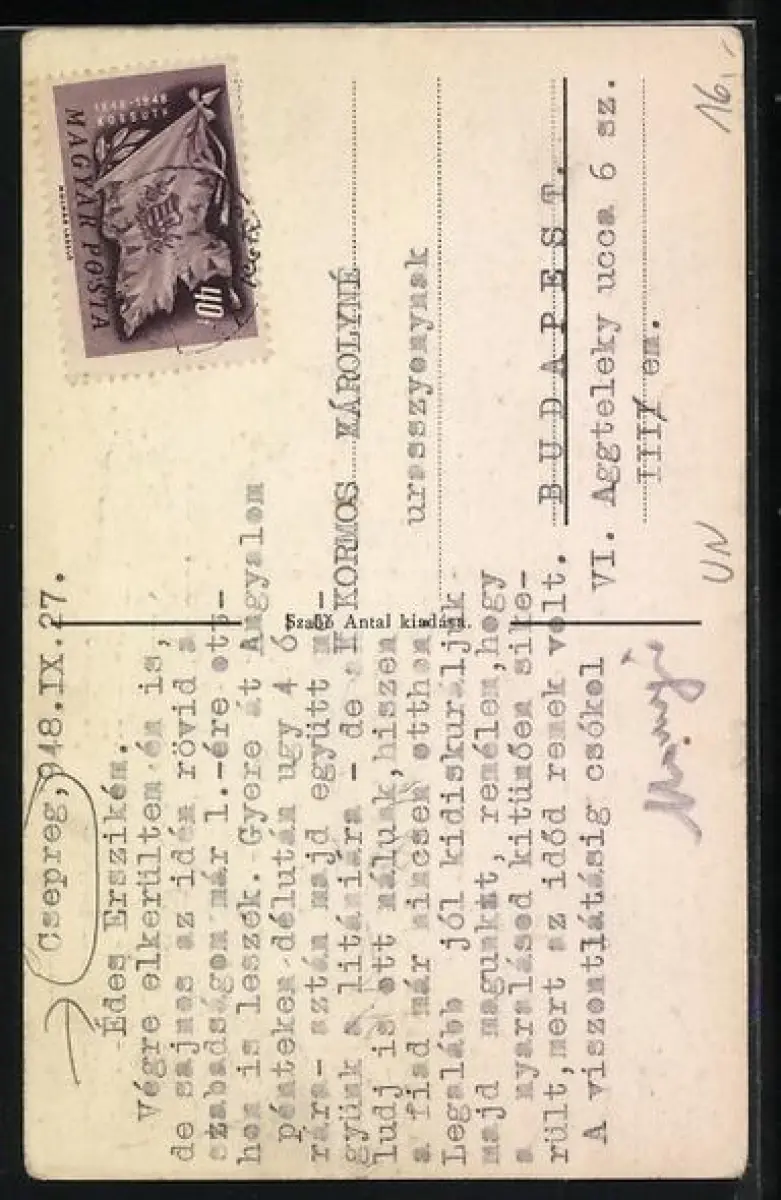 Csepreg, 948.IX.27.
Édes Erszikém.
Végre elkerültem én is,
de sajnos az idén rövid a
szabadságom már 1.-ére ott-
hon is leszek. Gyere át Angyalom
pénteken délután ugy 4 ó
rára- aztán majd együtt m-
gyünk a litániára - de a
ludj is ott nálunk, hiszen
a fiad már nincsen otthon
Legalább jól kidiskuráljuk
majd magunkat, remélem, hogy
a nyaralásod kitünően sike-
rült, mert az időd remek volt.
A viszontlátásig csókol
Szabó Antal kiadása.
1848-1948
KOSSUTH
MAGYAR POSTA
40
KORMOS KÁROLYNÉ
urasszyonynak
BUDAPEST.
VI. Aggteleky ucca 6 sz.
em.
UN
16.-